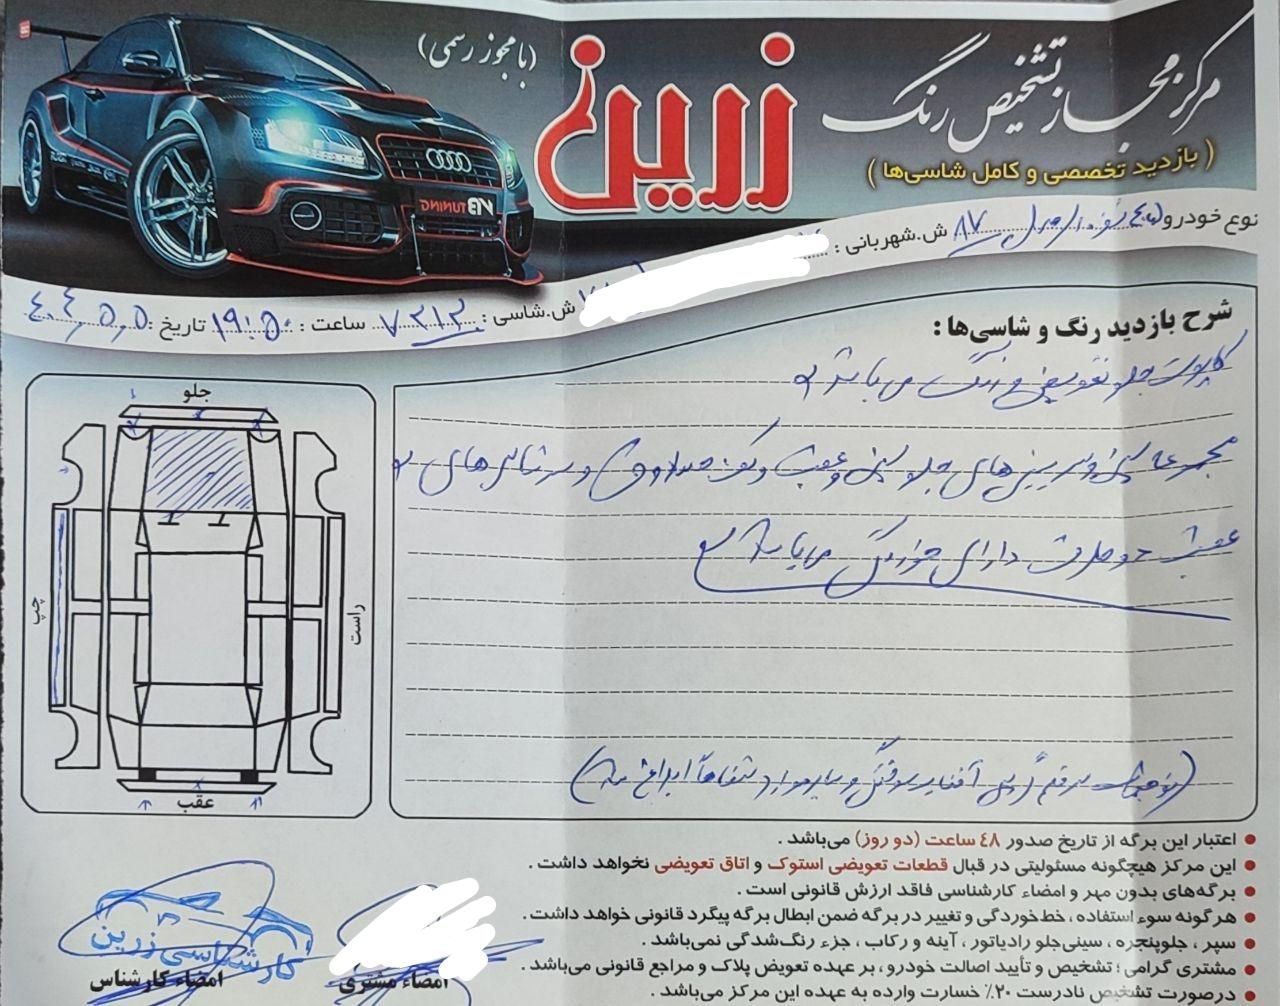 مرکز مجاز تشخیص رنگ
زرین
(با مجوز رسمی)
( بازدید تخصصی و کامل شاسی‌ها )
نوع خودرو ۴۰۵ مدل ۸۷ ش.شهربانی :
ش.شاسی : ۷۲۱۲ ساعت : ۱۹:۵۰ تاریخ : ۴۰۴,۵,۵
شرح بازدید رنگ و شاسی‌ها :
کاپوت جلو تعویض و رنگ می باشد
مجموعه سینی و سرسینی های جلو سینی عقب و کف صندوق و سرشاسی های
عقب دو طرف دارای خوردگی می باشد
(توضیحات شفاهاً ابلاغ شد)
جلو
چپ
راست
عقب
اعتبار این برگه از تاریخ صدور ۴۸ ساعت (دو روز) می‌باشد .
این مرکز هیچگونه مسئولیتی در قبال قطعات تعویضی استوک و اتاق تعویضی نخواهد داشت .
برگه‌های بدون مهر و امضاء کارشناسی فاقد ارزش قانونی است .
هرگونه سوء استفاده ، خط‌خوردگی و تغییر در برگه ضمن ابطال برگه پیگرد قانونی خواهد داشت .
سپر ، جلوپنجره ، سینی‌جلو رادیاتور ، آینه و رکاب ، جزء رنگ‌شدگی نمی‌باشد .
مشتری گرامی ؛ تشخیص و تأیید اصالت خودرو ، بر عهده تعویض پلاک و مراجع قانونی می‌باشد .
درصورت تشخیص نادرست ۲۰٪ خسارت وارده به عهده این مرکز می‌باشد .
کارشناسی زرین
امضاء مشتری
امضاء کارشناس